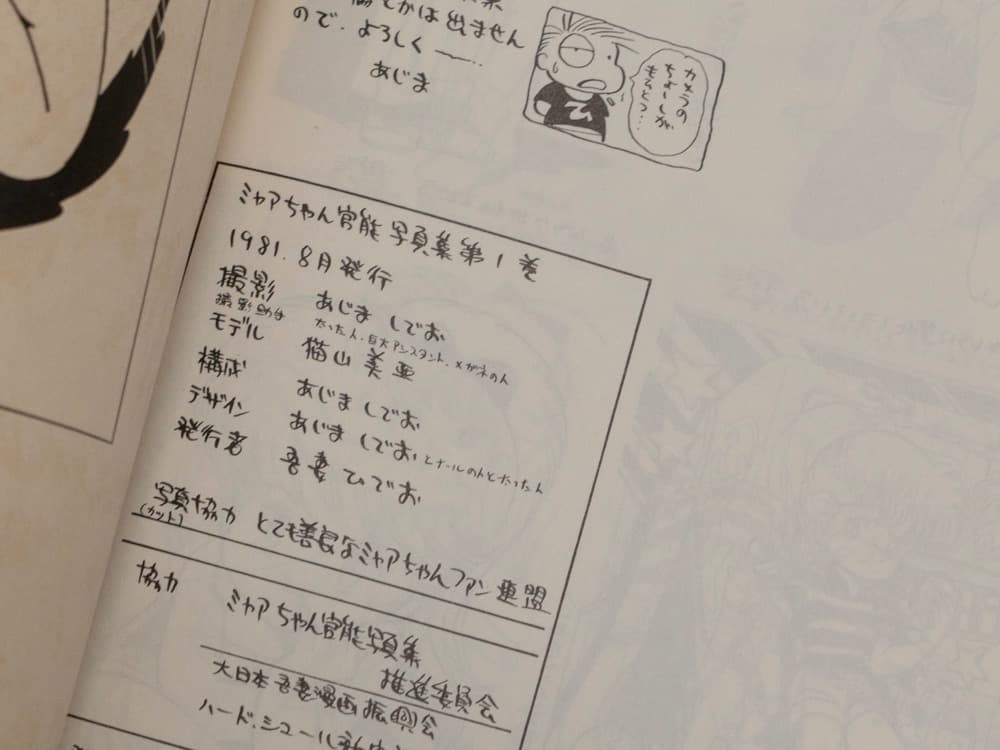 は出ません
ので、よろしく――…
あじま
カメラの
ちょーしが
ミャアちゃん官能写真集第1巻
1981.8月発行
撮影 あじましでお
撮影助手 たったん、巨大アシスタント、メガネの人
モデル 猫山美亜
構成 あじましでお
デザイン あじましでお とたったん
発行者 吾妻ひでお
写真協力 とても善良なミャアちゃんファン連盟
(カット)
協力 ミャアちゃん官能写真集
推進委員会
大日本吾妻漫画振興会
ハード.シュール